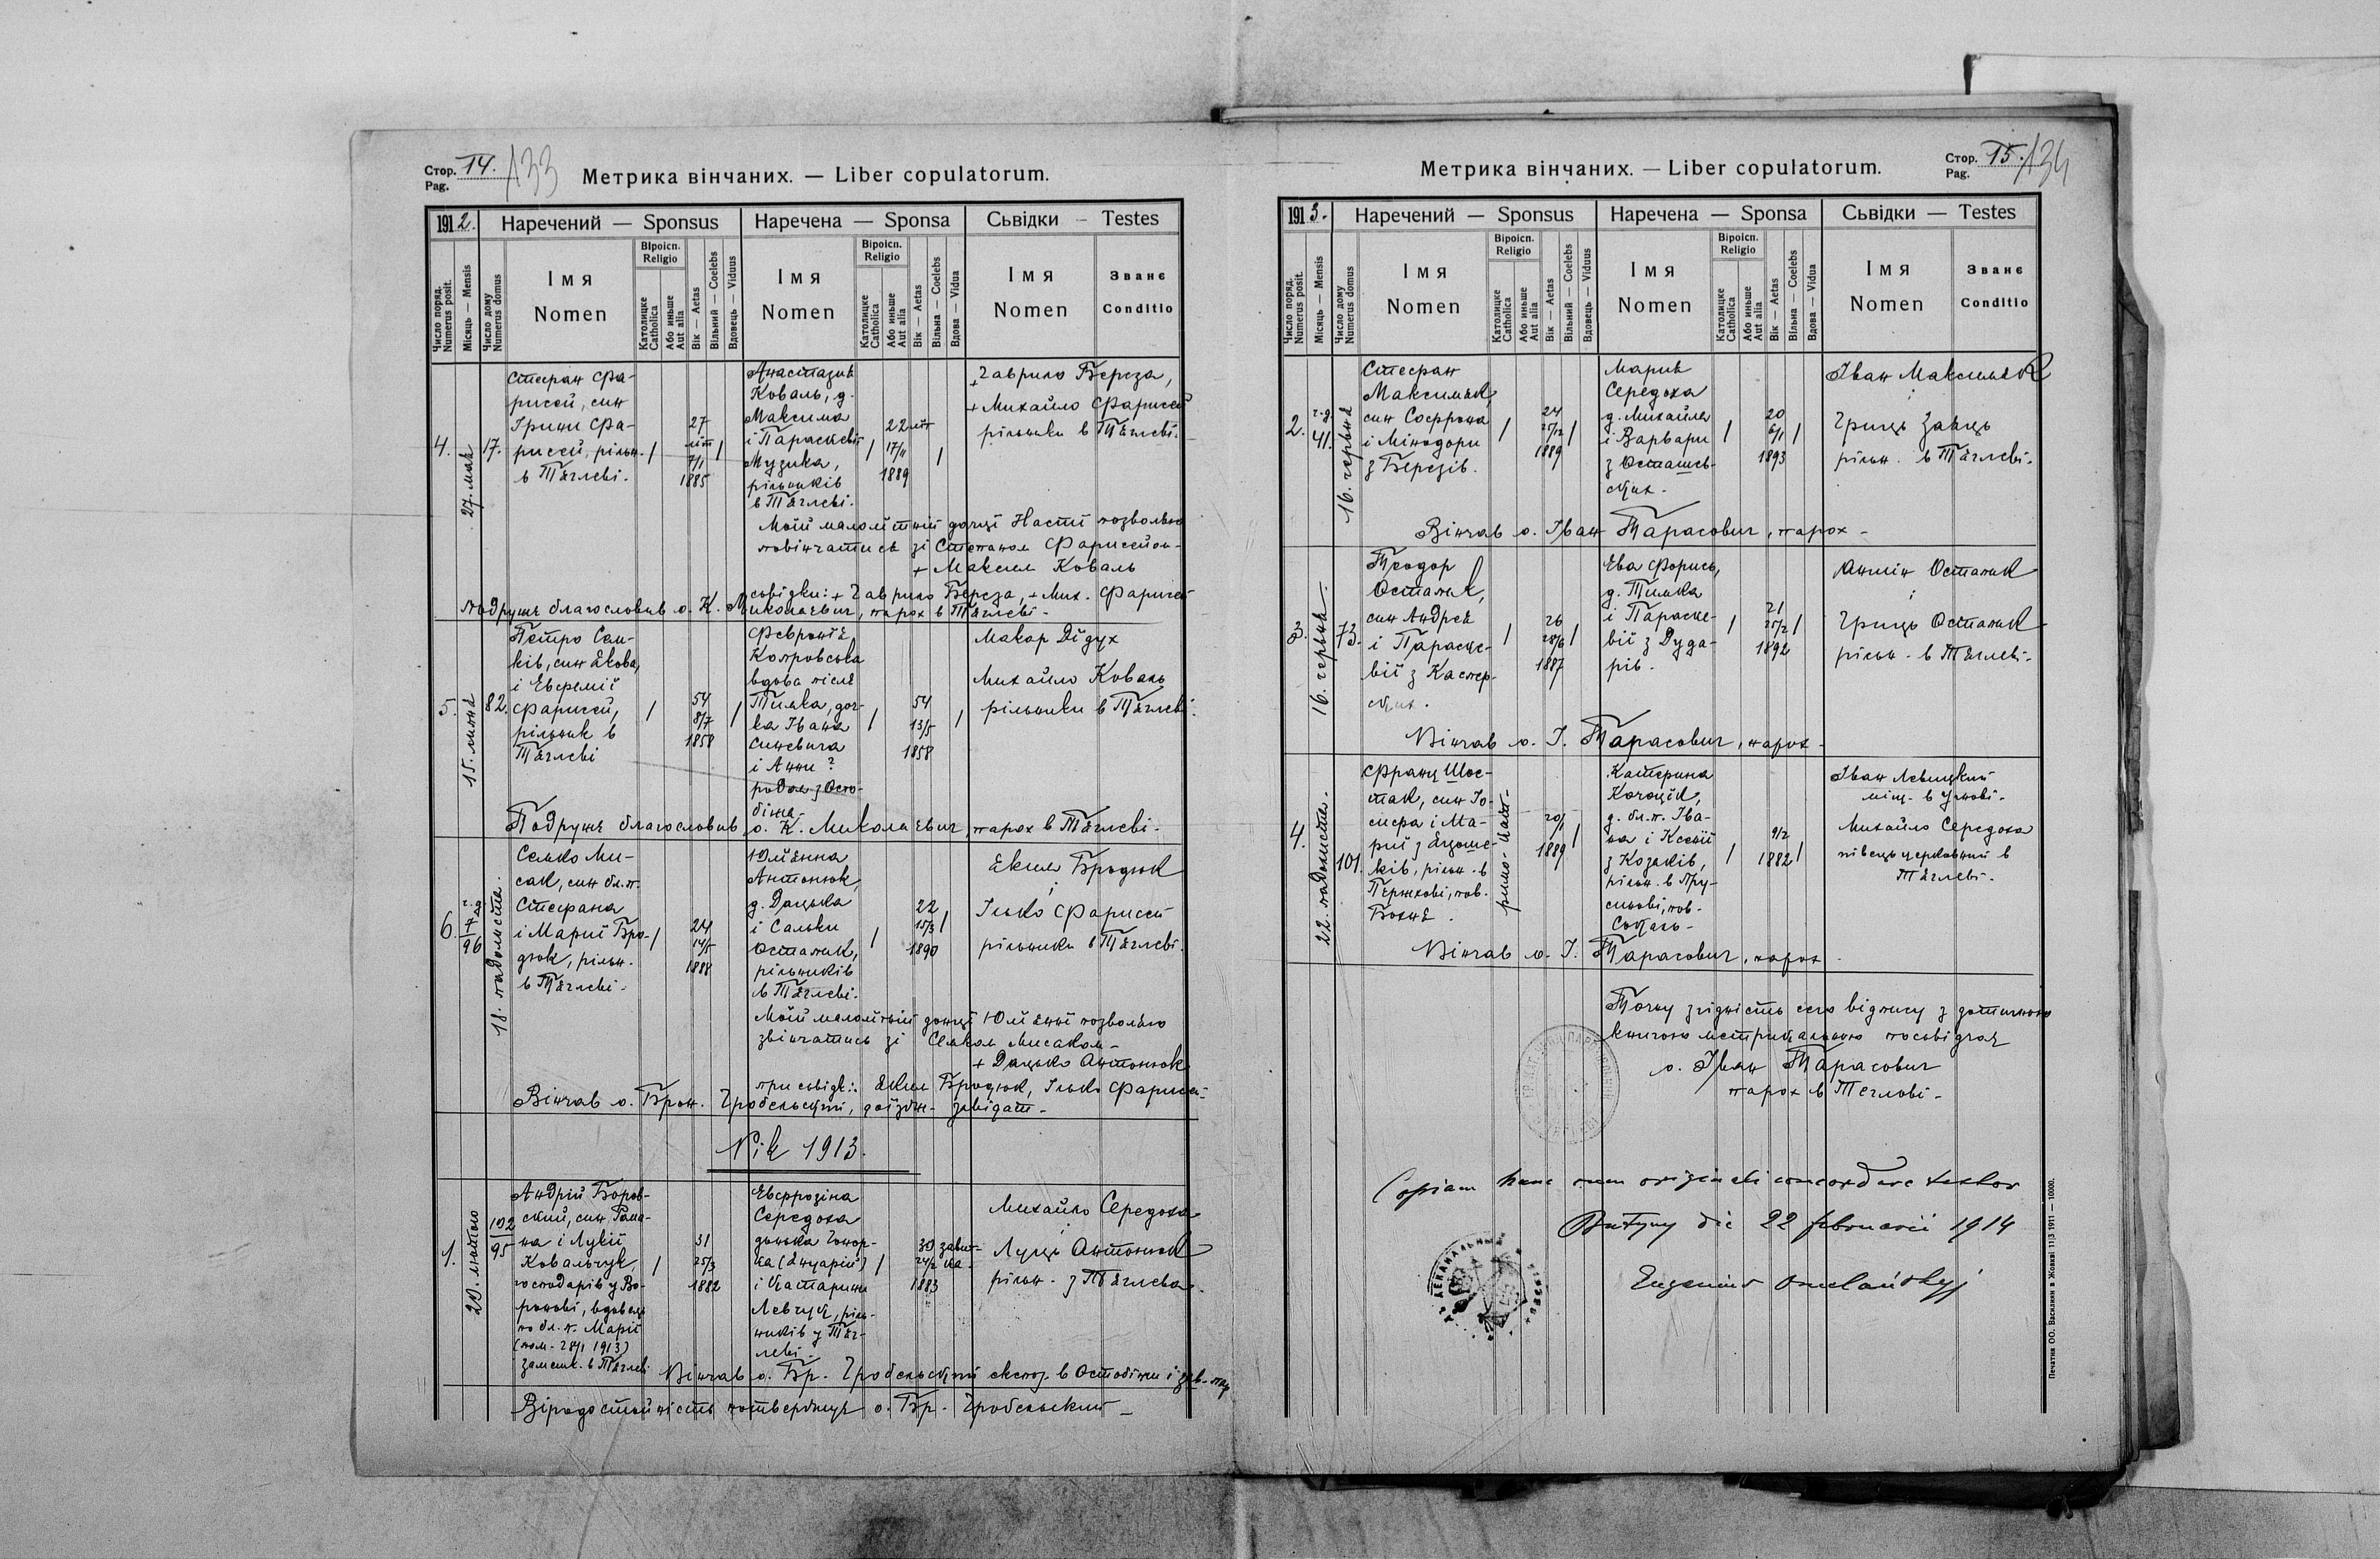 Стор. 14. 133
Pag.
Метрика вінчаних. — Liber copulatorum.
1912. Наречений — Sponsus Наречена — Sponsa Сьвідки — Testes
Число поряд. Numerus posit.
Місяць — Mensis
Число дому Numerus domus
Імя Nomen
Віроісп. Religio
Католицке Catholica
Або иньше Aut alia
Вік — Aetas
Вільний — Coelebs
Вдовець — Viduus
Імя Nomen
Віроісп. Religio
Католицке Catholica
Або иньше Aut alia
Вік — Aetas
Вільна — Coelebs
Вдова — Vidua
Імя Nomen
Званє Conditio
4. 27. мая 17.
Стефан Фа-
рисей, син
Гриня Фа-
рисей, рільн.
в Тяглеві.
27
літ
7/1
1885
Анастазия
Коваль, д.
Максима
і Параскеві
Музика,
рільників
в Тяглеві.
22 літ
17/11
1889
+ Гаврило Береза,
+ Михайло Фарисей
рільники в Тяглеві.
Моїй малолітній донці Насті позволяю
повінчатись зі Степаном Фарисейом
+ Максим Коваль
сьвідки: + Гаврило Береза, + Мих. Фарисей
подружє благословив о. К. Миколаєвич, парох в Тяглеві.
5. 15. липня 82.
Петро Сень-
ків, син Якова,
і Евфемії
Фарисей,
рільник в
Тяглеві
54
8/7
1858
Февронія
Копровська
вдова після
Тимка, доч-
ка Івана
Синевича
і Анни ?
родом з Осто-
біжа.
54
13/5
1858
Макар Дідух
Михайло Коваль
рільники в Тяглеві.
Подружє благословив о. К. Миколаєвич, парох в Тяглеві.
6. 18. падолиста. ч. д. 7/96
Семко Ми-
сак, син бл. п.
Стефана
і Марії Бро-
дюк, рільн.
в Тяглеві.
24
14/5
1888
Юліянна
Антонюк,
д. Дацька
і Сальки
Остапюк,
рільників
в Тяглеві.
22
15/3
1890
Яким Бродюк
і
Ілько Фарисей
рільники в Тяглеві.
Моїй малолітній донці Юліянні позволяю
звінчатись зі Семком Мисаком
+ Дацько Антонюк
при сьвідк: Яким Бродюк, Ілько Фарисей
Вінчав о. Брон. Гробельский, доїздж. завідат.
Рік 1913.
1. 20. лютого 102/95
Андрій Боров-
ский, син Рома-
на і Лукії
Ковальчук,
господарів у Во-
ронові, вдовець
по бл. п. Марії
(пом. 28/1 1913)
замешк. в Тяглеві
31
25/3
1882
Евфрозіна
Середоха
донька Гонор-
ка (Януарій)
і Катарини
Левчук, ріль-
ників у Тяг-
леві.
30
24/2
1883
завит-
ка
Михайло Середоха
і
Луць Антонюк
рільн. з Тяглева.
Вінчав о. Бр. Гробельский експоз. в Остобіжи і зав. пар
Віродостойність потверджує о. Бр. Гробельский
Стор. 15. 134
Pag.
Метрика вінчаних. — Liber copulatorum.
1913. Наречений — Sponsus Наречена — Sponsa Сьвідки — Testes
Число поряд. Numerus posit.
Місяць — Mensis
Число дому Numerus domus
Імя Nomen
Віроісп. Religio
Католицке Catholica
Або иньше Aut alia
Вік — Aetas
Вільний — Coelebs
Вдовець — Viduus
Імя Nomen
Віроісп. Religio
Католицке Catholica
Або иньше Aut alia
Вік — Aetas
Вільна — Coelebs
Вдова — Vidua
Імя Nomen
Званє Conditio
2. ч. д. 41. 16. червня
Стефан
Максимяк,
син Софрона
і Мінодори
з Березів.
24
25/12
1889
Мария
Середоха
д. Михайла
і Варвари
з Осташев-
ских.
20
6/1
1893
Іван Максимяк
і
Гриць Заяць
рільн. в Тяглеві.
Вінчав о. Іван Тарасович, парох
3. 16. червня. 73.
Теодор
Остапюк,
син Андрея
і Параске-
вії з Каспер-
ских.
26
28/6
1887
Ева Форись,
д. Тимка
і Параске-
вії з Дуда-
рів.
21
25/2
1892
Антін Остапюк
і
Гриць Остапюк
рільн. в Тяглеві.
Вінчав о. І. Тарасович, парох
4. 22. падолиста. 101.
Франц Шос-
так, син Йо-
сифа і Ма-
рії з Яцоше-
ків, рільн. в
пов.
Бохня.
римо-кат.
20/1
1889
Катерина
Д. бл. п. Іва-
на і Ксенії
з Козаків,
рільн. в Пру-
синові, пов.
Сокаль.
9/2
1882
Іван Левицкий
міщ. в Угнові.
Михайло Середоха
півець церковний в
Тяглеві.
Вінчав о. І. Тарасович, парох
Точну згідність сего відпису з дотичною
книгою метрикальною посьвідчає
о. Іван Тарасович
парох в Тяглові.
Copiam hanc cum originali concordare testor
die 22 februarii 1914
Eugenius Omelańskyj
Печатня ОО. Василиян в Жовкві 11|3 1911 — 10000.